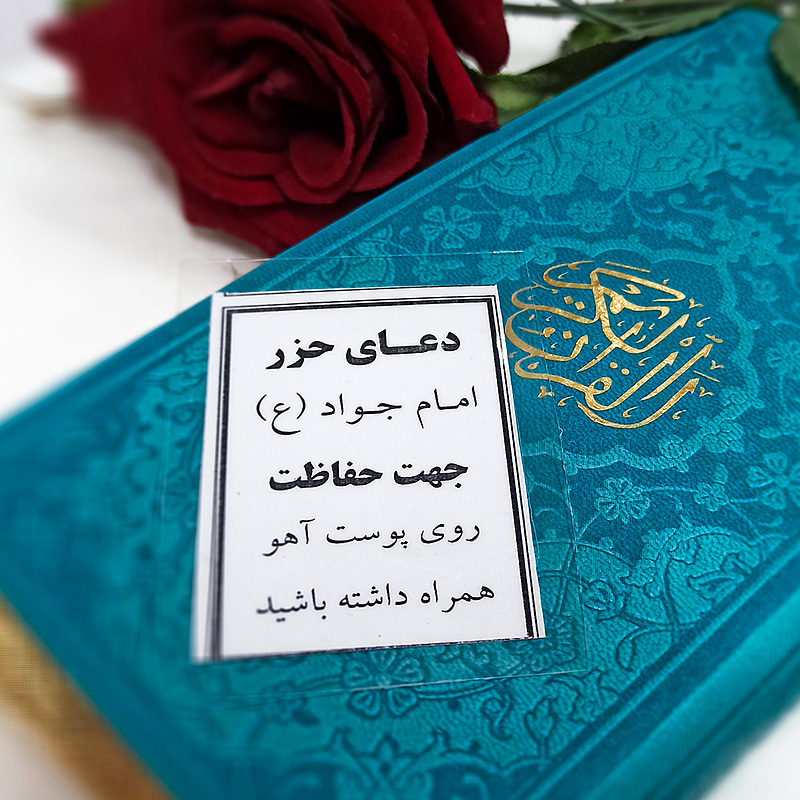 دعای حزر
امام جواد (ع)
جهت حفاظت
روی پوست آهو
همراه داشته باشید
القرآن الکریم